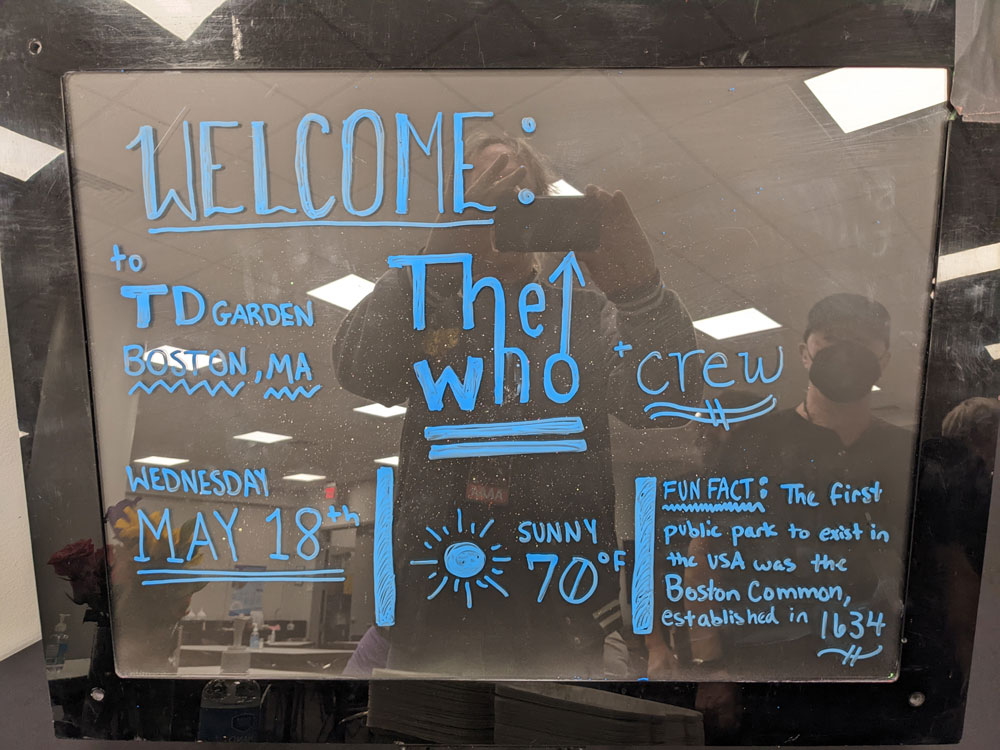 WELCOME:
to
TD GARDEN
BOSTON, MA
The
who
+ crew
WEDNESDAY
MAY 18th
SUNNY
70°F
FUN FACT: The first
public park to exist in
the USA was the
Boston Common,
established in 1634